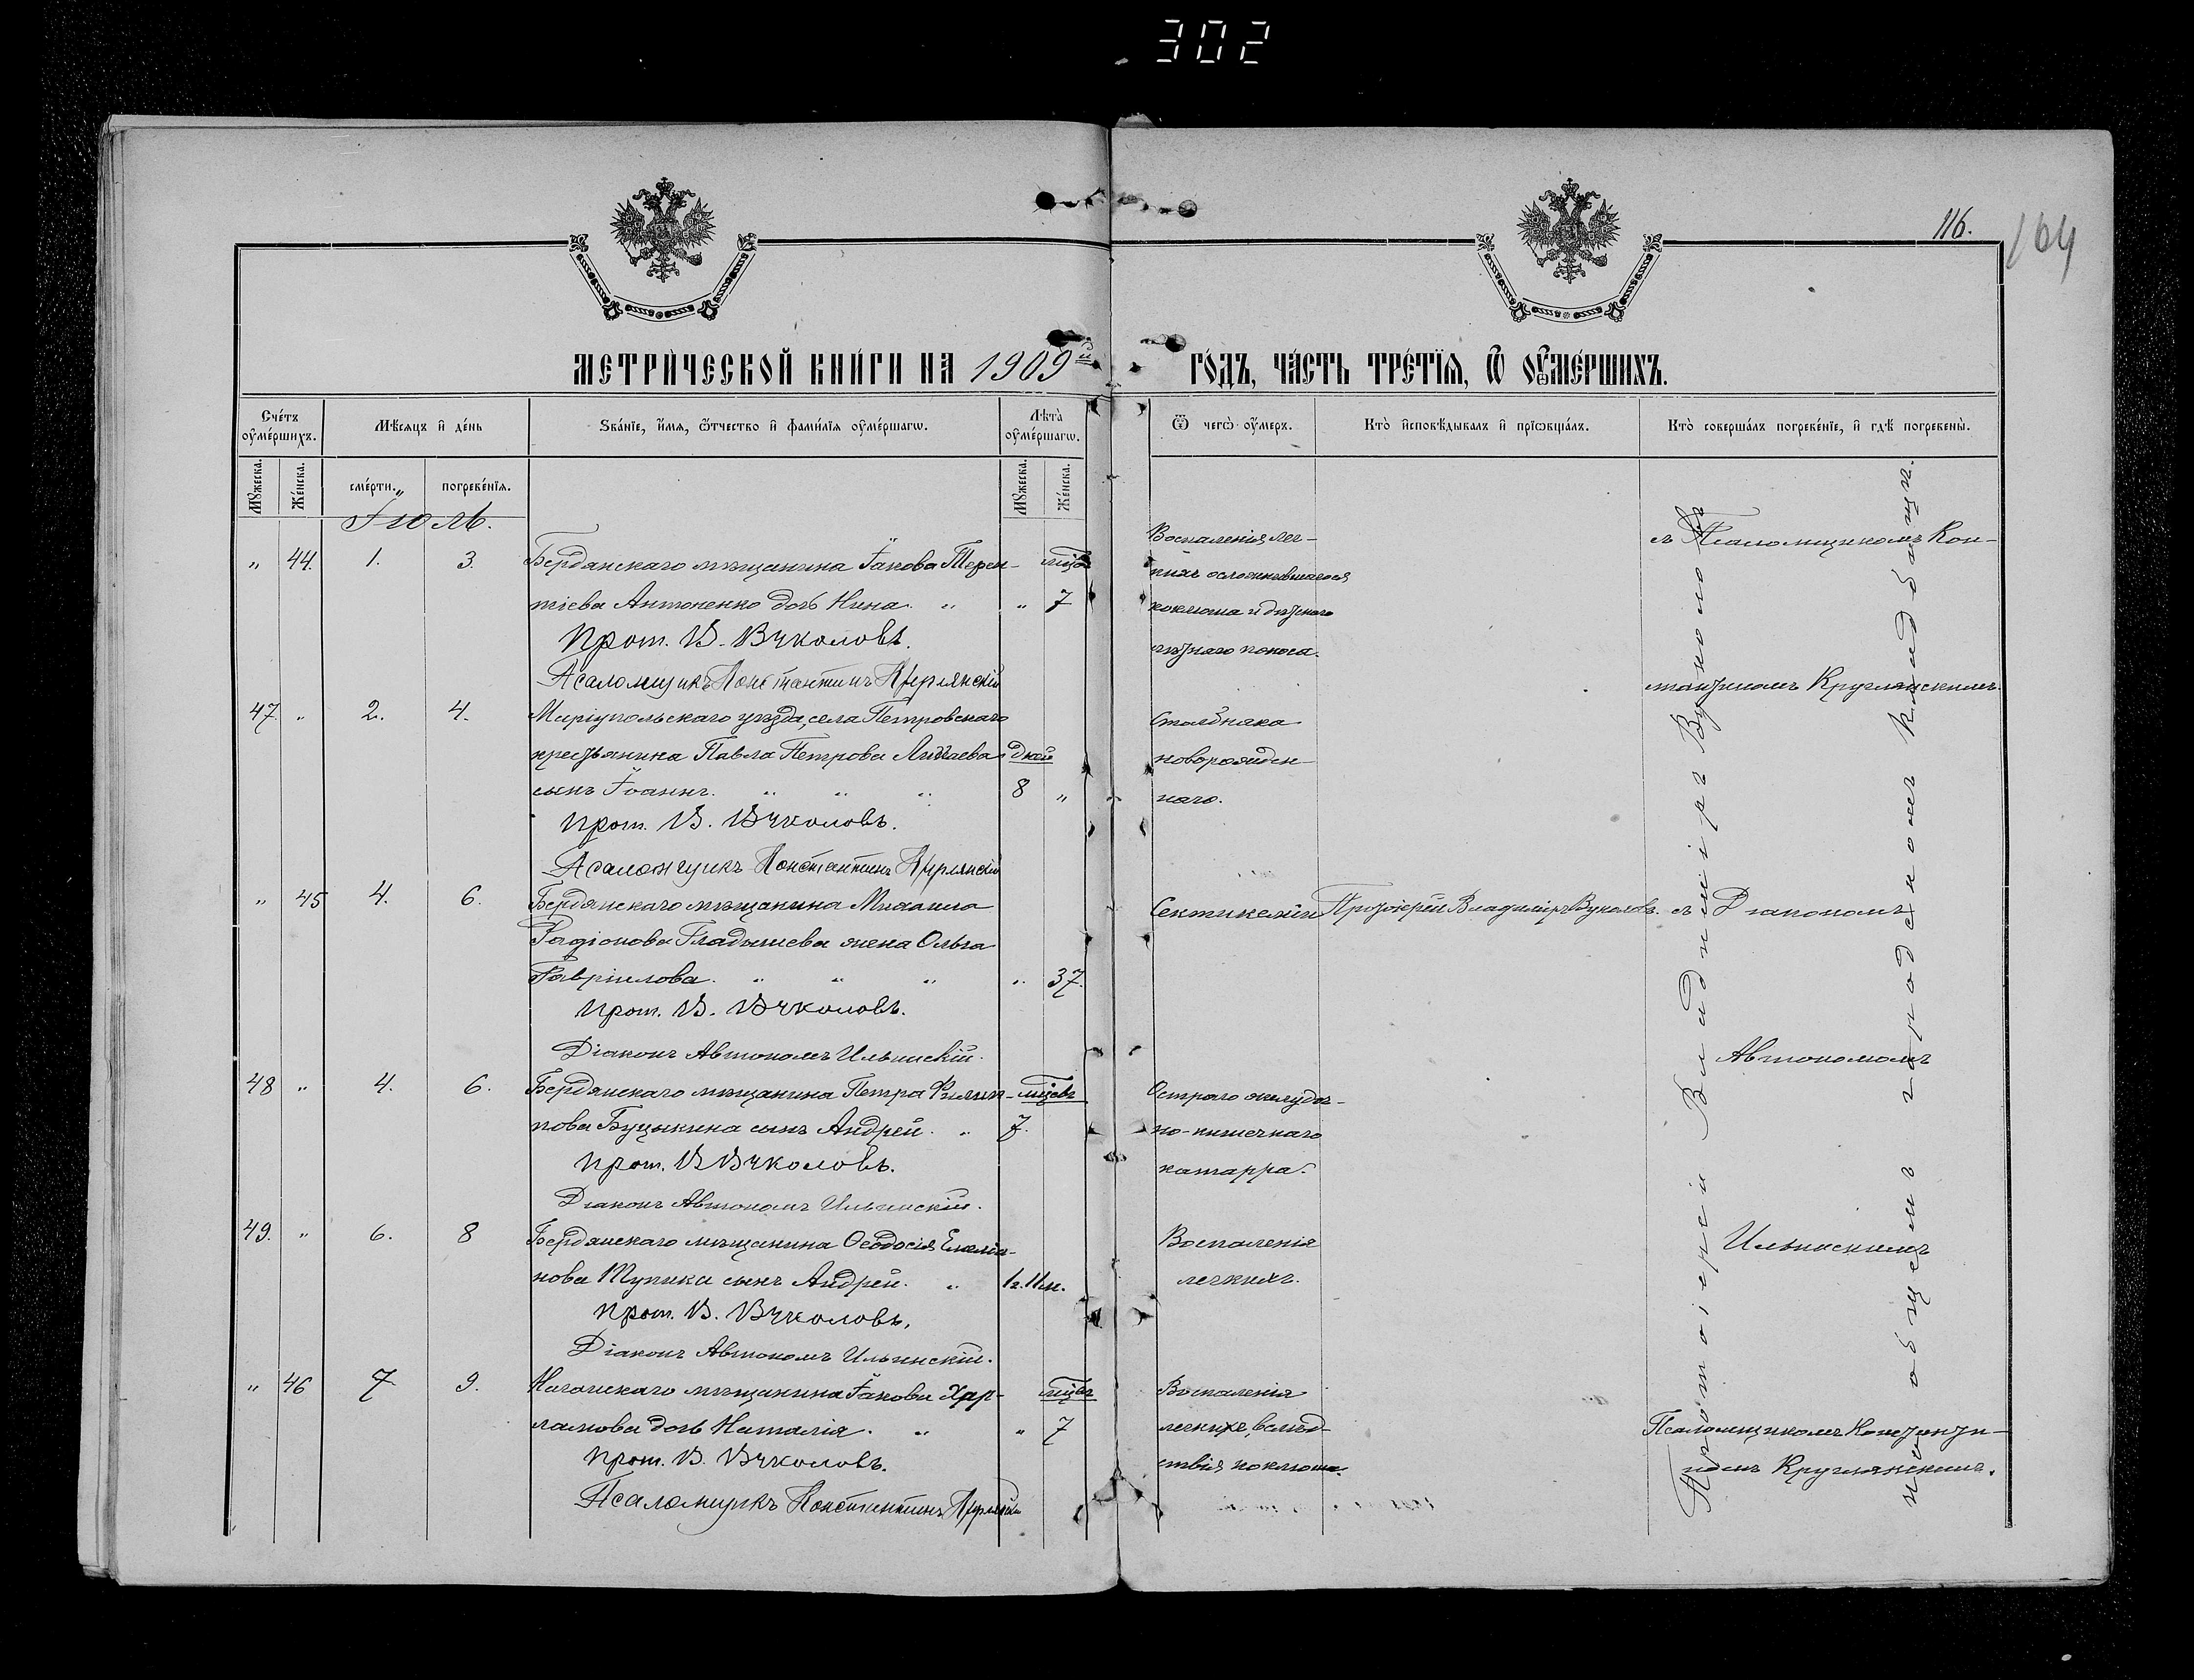 302
116.
164
МЕТРИЧЕСКОЙ КНИГИ НА 1909й ГОДЪ, ЧАСТЬ ТРЕТІЯ, Ѿ ОУМЕРШИХЪ.
Счетъ оумершихъ.
Мѣсяцъ и день
Званіе, имя, отчество и фамилія оумершагω.
Лѣта оумершагω.
Ѿ чегω оумеръ.
Кто исповѣдывалъ и пріωбщалъ.
Кто совершалъ погребеніе, и гдѣ погребены.
Мꙋжеска.
Женска.
смерти.
погребенія.
Мꙋжеска.
Женска.
Іюль.
" 44. 1. 3. Бердянскаго мѣщанина Іакова Терен-
тіева Антоненко дочь Нина. " " 7
Прот. В. Вуколовъ.
Псаломщикъ Константинъ Круглянскій
Воспаленія лег-
кихъ осложнившагося
коклюша и дѣтскаго
лѣтняго поноса.
съ Псаломщикомъ Кон-
стантиномъ Круглянскимъ.
47. " 2. 4. Маріупольскаго уѣзда, села Петровскаго
крестьянина Павла Петрова дней
сынъ Іоаннъ. " " " 8 "
Прот. В. Вуколовъ.
Псаломщикъ Константинъ Круглянскій
Столбняка
новорожден-
наго.
" 45 4. 6. Бердянскаго мѣщанина Михаила
Родіонова Гладышева жена Ольга
Гавріилова. " " " " 37.
Прот. В. Вуколовъ.
Діаконъ Автономъ Ильинскій.
Септикеміи Протоіерей Владиміръ Вуколовъ. съ Діакономъ
Автономомъ
Ильинскимъ
48 " 4. 6. Бердянскаго мѣщанина Петра Филип- мѣсцевъ
пова Буцыкина сынъ Андрей. " 7.
Прот. В Вуколовъ.
Діаконъ Автономъ Ильинскій.
Остраго желудоч-
но-кишечнаго
катарра.
49. " 6. 8 Бердянскаго мѣщанина Ѳеодосія Емелія-
нова Тупика сынъ Андрей. " 1г. 11м.
Прот. В. Вуколовъ.
Діаконъ Автономъ Ильинскій.
Воспаленія
легкихъ.
" 46 7 9. Ногайскаго мѣщанина Іакова Хар-
ламова дочь Наталія. " " 7
Прот. В. Вуколовъ.
Псаломщикъ Константинъ Круглянскій
Воспаленія
легкихъ, вслѣд-
ствія коклюша.
Псаломщикомъ Константи-
номъ Круглянскимъ.
Протоіерей Владиміръ Вуколовъ
на общемъ городскомъ кладбищѣ.